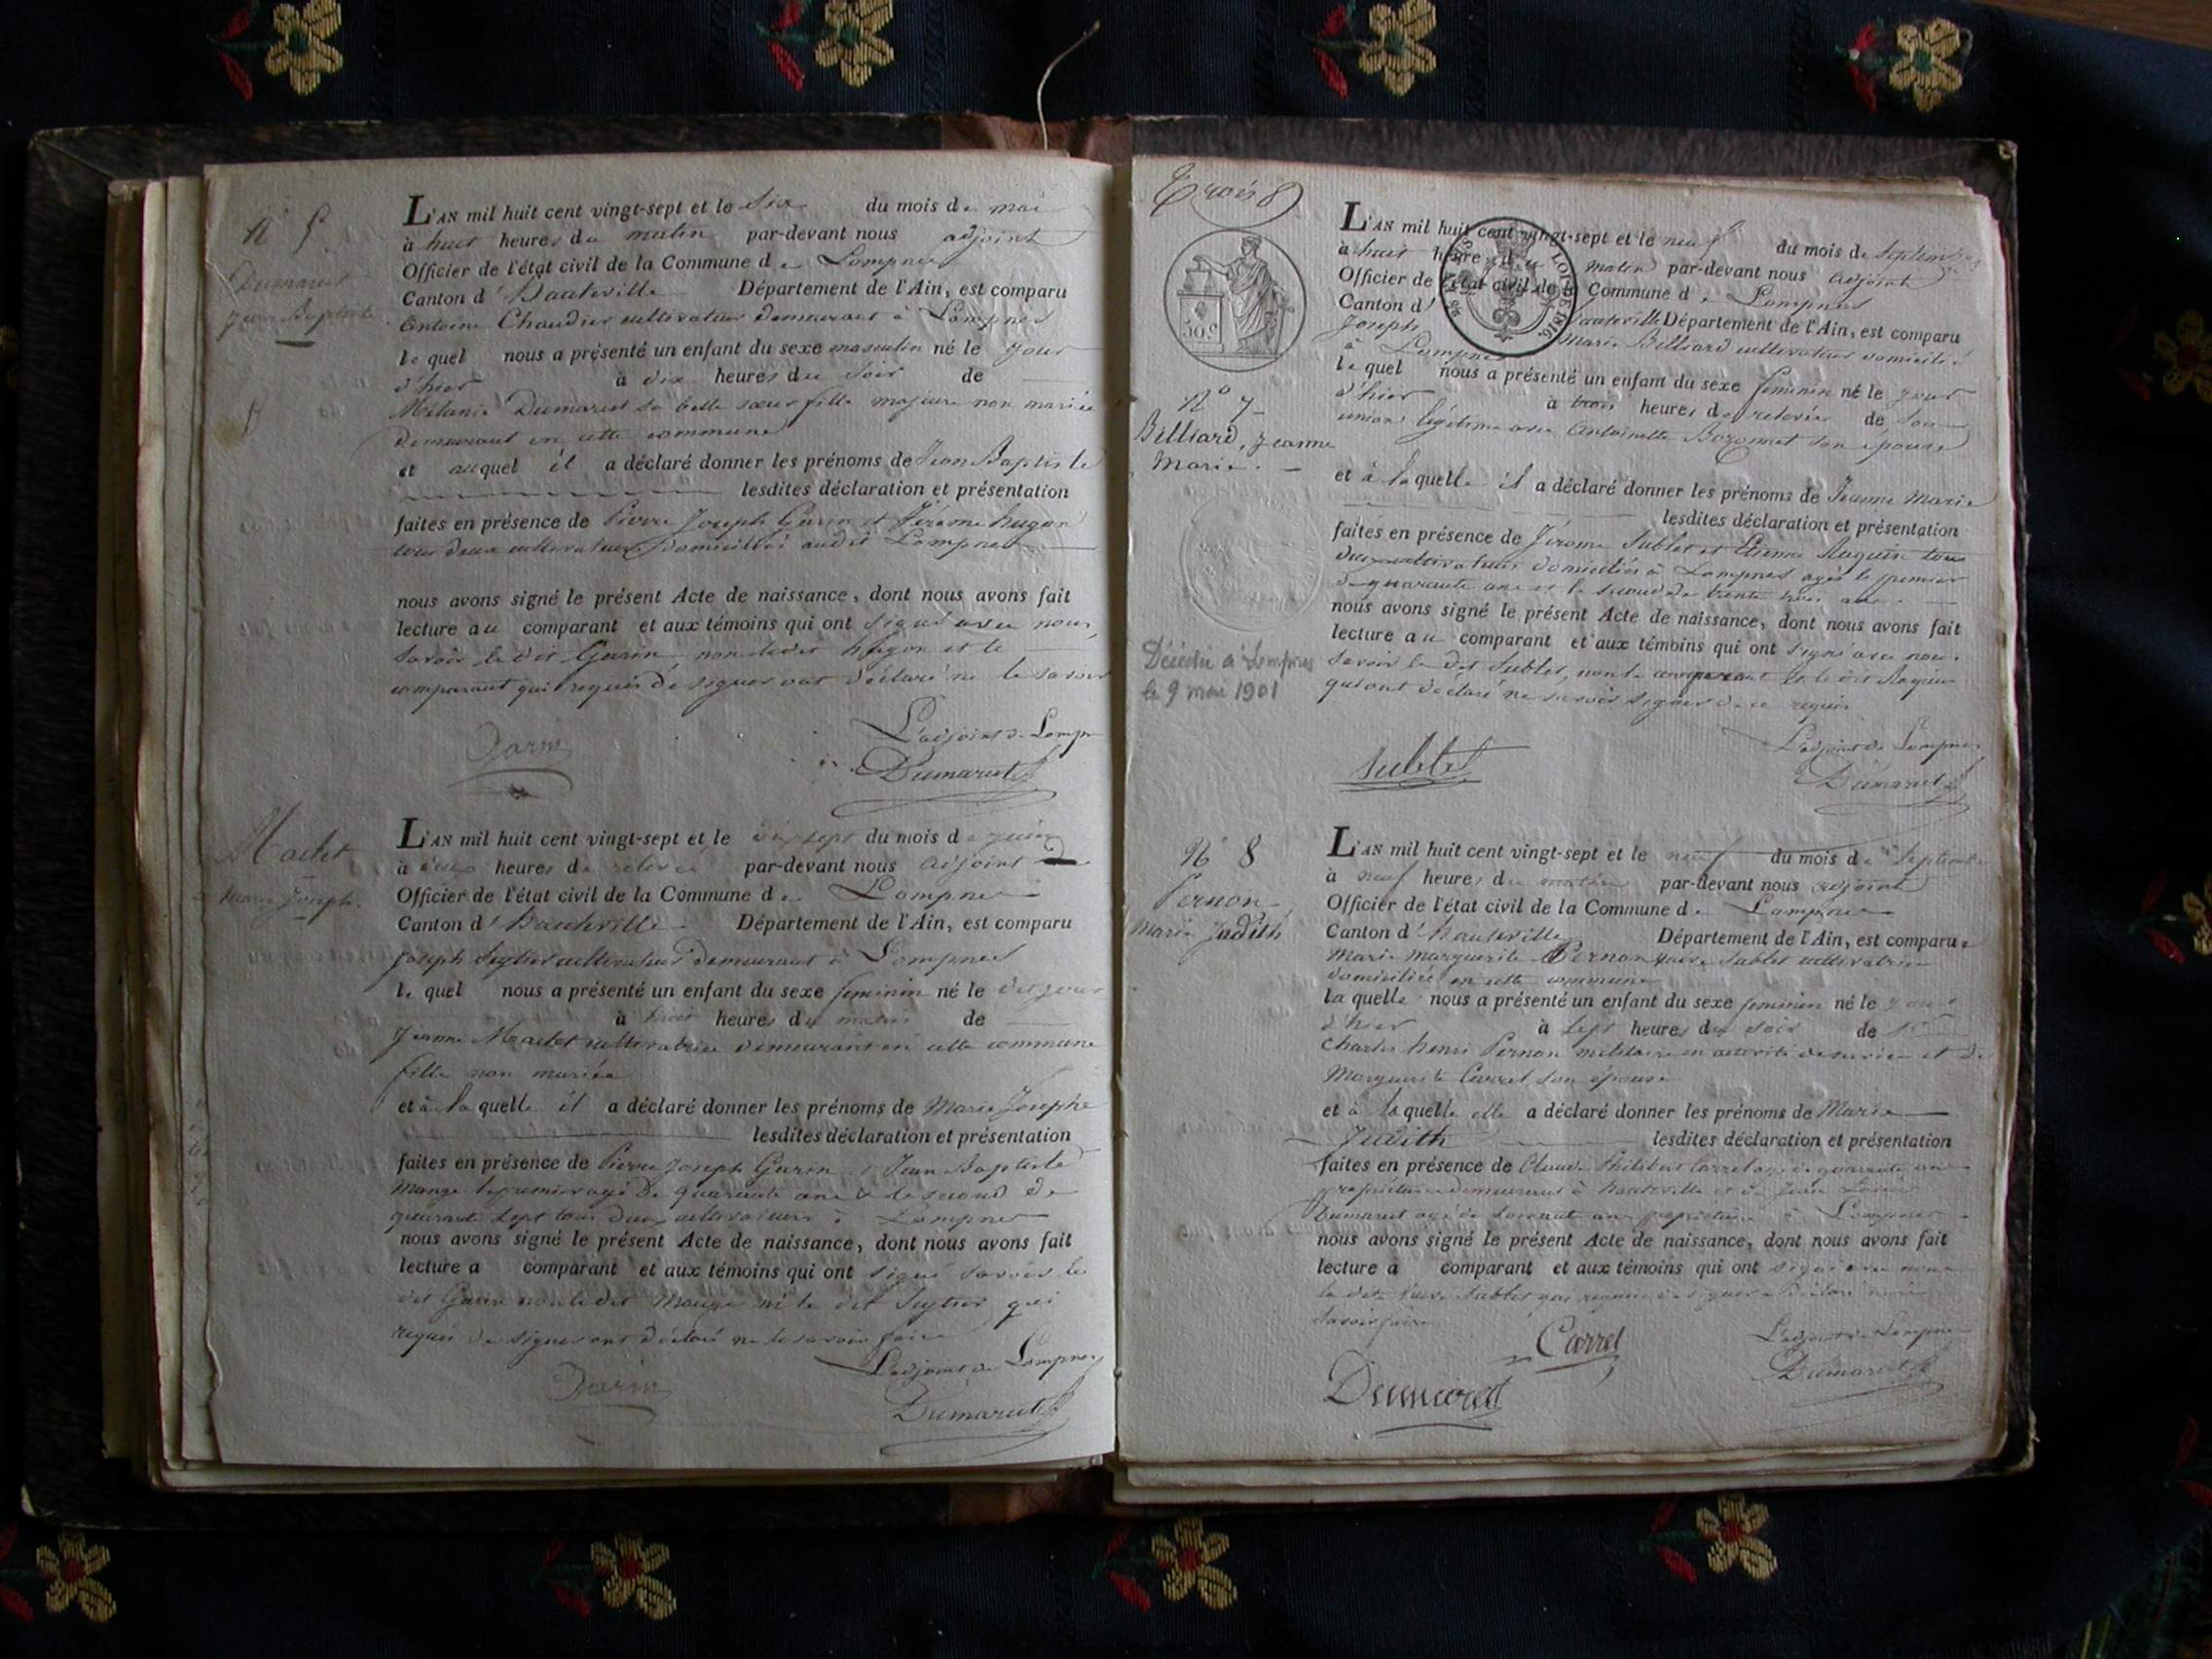 N° 5
Dumarest
Jean Baptiste
L'AN mil huit cent vingt-sept et le six du mois de mai
à huit heures du matin par-devant nous adjoint
Officier de l'état civil de la Commune de Lompnes
Canton d'hauteville Département de l'Ain, est comparu
Antoine Chaudier cultivateur demeurant à Lompnes
lequel nous a présenté un enfant du sexe masculin né le jour
d'hier à dix heures du soir de
Mélanie Dumarest sa belle sœur fille majeure non mariée
demeurant en cette commune
et auquel il a déclaré donner les prénoms de Jean Baptiste
lesdites déclaration et présentation
faites en présence de Pierre Joseph Garin et Jérome hugon
tous deux cultivateurs domiciliés audit Lompnes
nous avons signé le présent Acte de naissance, dont nous avons fait
lecture au comparant et aux témoins qui ont signé avec nous,
savoir le dit Garin, non ledit hugon et le
comparant qui requis de signer ont déclaré ne le savoir
Garin
L'adjoint de Lompnes
Dumarest
Machet
Marie Joseph.
L'AN mil huit cent vingt-sept et le dix sept du mois de juin
à deux heures de relevée par-devant nous adjoint
Officier de l'état civil de la Commune de Lompnes
Canton d'hauteville Département de l'Ain, est comparu
joseph cultivateur demeurant à Lompnes
lequel nous a présenté un enfant du sexe feminin né le dit jour
à heures du matin de
Jeanne Machet cultivatrice demeurant en cette commune
fille non mariée
et à laquelle il a déclaré donner les prénoms de Marie Josephe
lesdites déclaration et présentation
faites en présence de Pierre Joseph Garin et Jean Baptiste
Mange le premier agé de quarante ans & le second de
quarante sept tous deux cultivateurs à Lompnes
nous avons signé le présent Acte de naissance, dont nous avons fait
lecture a comparant et aux témoins qui ont signé savoir le
dit Garin non ledit Mange ni le dit qui
requis de signer ont déclaré ne le savoir faire
Garin
L'adjoint de Lompnes
Dumarest
Trois
50 c
LOI DE 1816.
N° 7
Billiard, Jeanne
Marie.
Décédée à Lompnes
le 9 mai 1901
L'AN mil huit cent vingt-sept et le neuf du mois de septembre
à huit heures du matin par-devant nous adjoint
Officier de l'état civil de la Commune de Lompnes
Canton d'hauteville Département de l'Ain, est comparu
Joseph Marie Billiard cultivateur domicilié
à Lompnes
lequel nous a présenté un enfant du sexe feminin né le jour
d'hier à trois heures de relevée de son
union légitime avec Antoinette Bozonnet son épouse
et à laquelle il a déclaré donner les prénoms de Jeanne Marie
lesdites déclaration et présentation
faites en présence de Jérome Sublet et Etienne Raquin tous
deux cultivateurs domiciliés à Lompnes agés le premier
de quarante ans et le second de trente trois ans
nous avons signé le présent Acte de naissance, dont nous avons fait
lecture au comparant et aux témoins qui ont signé avec nous.
savoir le dit Sublet, non le comparant et le dit Raquin
qui ont déclaré ne savoir signer de ce requis
Sublet
L'adjoint de Lompnes
Dumarest
N° 8
Pernon
Marie Judith
L'AN mil huit cent vingt-sept et le neuf du mois de septembre
à neuf heures du matin par-devant nous adjoint
Officier de l'état civil de la Commune de Lompnes
Canton d'hauteville Département de l'Ain, est comparue
Marie Marguerite Pernon veuve Sublet cultivatrice
domiciliée en cette commune
laquelle nous a présenté un enfant du sexe feminin né le jour
d'hier à sept heures du soir de
Charles henri Pernon militaire en activité de service et de
Marguerite Carrel son épouse
et à laquelle elle a déclaré donner les prénoms de Marie
Judith lesdites déclaration et présentation
faites en présence de Claude Philibert Carrel agé de quarante ans
propriétaire demeurant à hauteville et de Jean Louis
Dumarest agé de soixante ans propriétaire à Lompnes
nous avons signé le présent Acte de naissance, dont nous avons fait
lecture à comparant et aux témoins qui ont signé avec nous
la dite veuve Sublet pas requise de signer a déclaré ne le
savoir faire
Carrel
L'adjoint de Lompnes
Dumarest
Dumarest